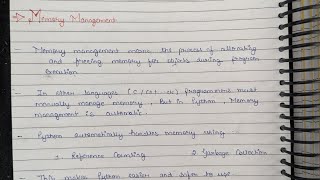 Memory Management
- Memory management means the process of allocating
and freeing memory for objects during program
Execution
- In other languages (C / C++ etc) programmer must
manually manage memory, But in Python, Memory
management is automatic.
- Python automatically handles memory using
1 Reference Counting 2 Garbage Collection
- This makes Python easier and safer to use